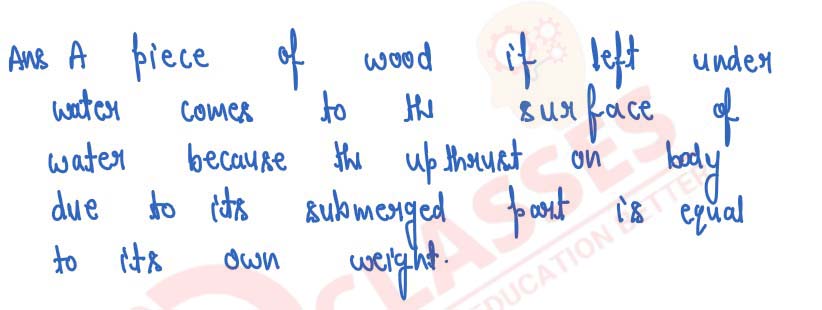 Ans A piece of wood if left under
water comes to the surface of
water because the upthrust on body
due to its submerged part is equal
to its own weight.
CLASSES
EDUCATION BETTER